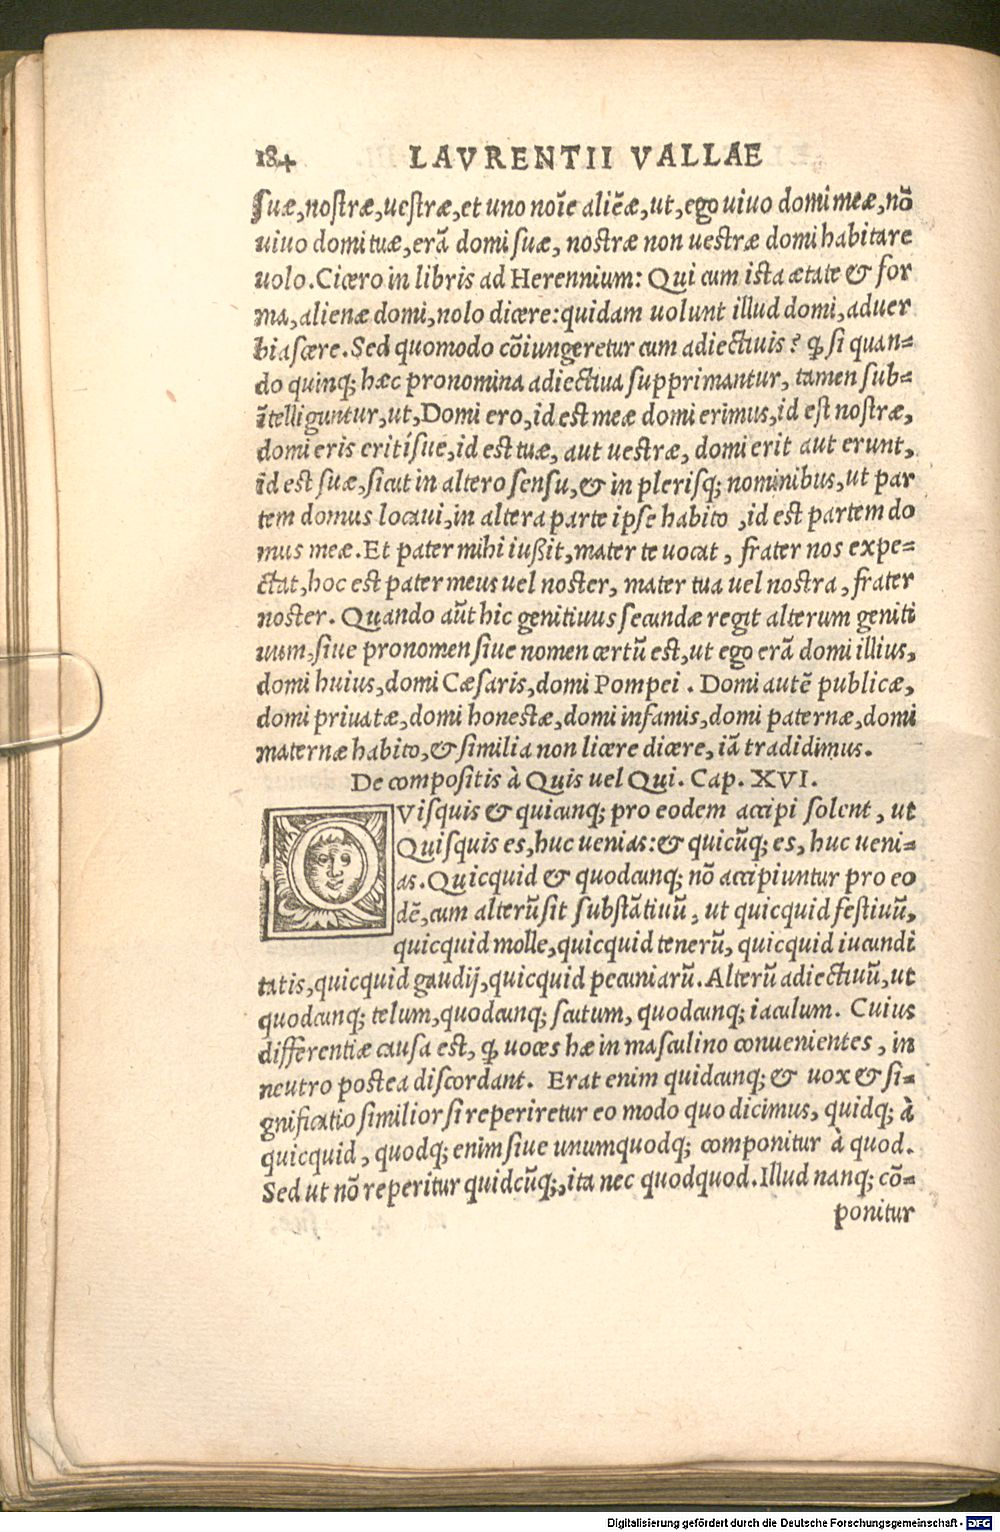 184 LAVRENTII VALLAE
suæ, nostræ, uestræ, et uno noīe aliēæ, ut, ego uiuo domi meæ, nō
uiuo domi tuæ, erā domi suæ, nostræ non uestræ domi habitare
uolo. Cicero in libris ad Herennium: Qui cum ista ætate & for
ma, alienæ domi, nolo dicere: quidam uolunt illud domi, aduer
bia scere. Sed quomodo cōiungeretur cum adiectiuis? ꝙ si quan=
do quinqꝫ hæc pronomina adiectiua supprimantur, tamen sub=
ītelliguntur, ut, Domi ero, id est meæ domi erimus, id est nostræ,
domi eris eritísue, id est tuæ, aut uestræ, domi erit aut erunt,
id est suæ, sicut in altero sensu, & in plerisqꝫ nominibus, ut par
tem domus locaui, in altera parte ipse habito, id est partem do
mus meæ. Et pater mihi iußit, mater te uocat, frater nos expe=
ctat, hoc est pater meus uel noster, mater tua uel nostra, frater
noster. Quando aūt hic genitiuus secundæ regit alterum geniti
uum, siue pronomen siue nomen certū est, ut ego erā domi illius,
domi huius, domi Cæsaris, domi Pompei. Domi autē publicæ,
domi priuatæ, domi honestæ, domi infamis, domi paternæ, domi
maternæ habito, & similia non licere dicere, iā tradidimus.
De compositis à Quis uel Qui. Cap. XVI.
QVisquis & quicunqꝫ pro eodem accipi solent, ut
Quisquis es, huc uenias: & quicūqꝫ es, huc ueni=
as. Quicquid & quodcunqꝫ nō accipiuntur pro eo
dē, cum alterū sit substātiuū, ut quicquid festiuū,
quicquid molle, quicquid tenerū, quicquid iucundi
tatis, quicquid gaudij, quicquid pecuniarū. Alterū adiectiuū, ut
quodcunqꝫ telum, quodcunqꝫ scutum, quodcunqꝫ iaculum. Cuius
differentiæ causa est, ꝙ uoces hæ in masculino conuenientes, in
neutro postea discordant. Erat enim quidcunqꝫ & uox & si=
gnificatio similior si reperiretur eo modo quo dicimus, quidqꝫ à
quicquid, quodqꝫ enim siue unumquodqꝫ componitur à quod.
Sed ut nō reperitur quidcūqꝫ, ita nec quodquod. Illud nanqꝫ cō=
ponitur
Digitalisierung gefördert durch die Deutsche Forschungsgemeinschaft - DFG